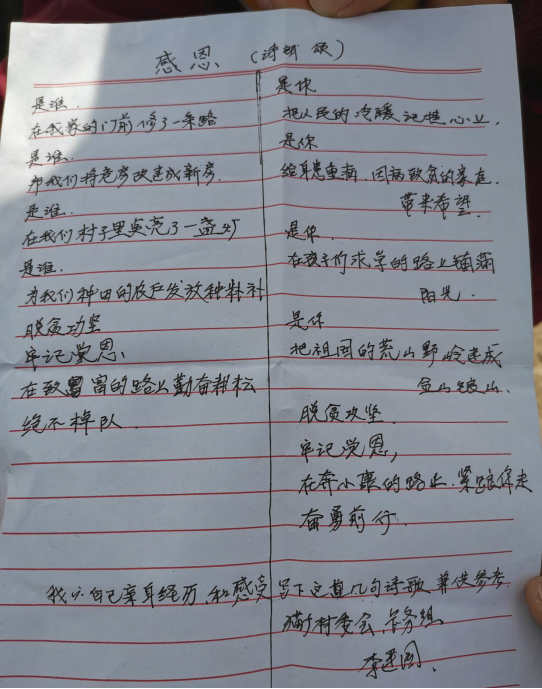 感恩 (诗朗 颂)
是谁.
在我家的门前修了一条路
是谁.
帮我们将危房改建成新房.
是谁.
在我们村子里点亮了一盏灯
是谁.
为我们种田的农户发放种料补
脱贫功坚
牢记党恩、
在致富的路上勤奋
绝不掉队.
是你
把人民的冷暖记挂心上.
是你
给身患重病、因病致贫的家庭.
带来希望.
是你.
在孩子们求学的路上铺满
阳光.
是你
把祖国的荒山野岭建成
金山银山.
脱贫攻坚.
牢记党恩,
在奔小康的路上.紧跟你走
奋勇前行.
我以自己亲身经历、和感受写下这首几句诗歌 供参考
村委会、
李建国、